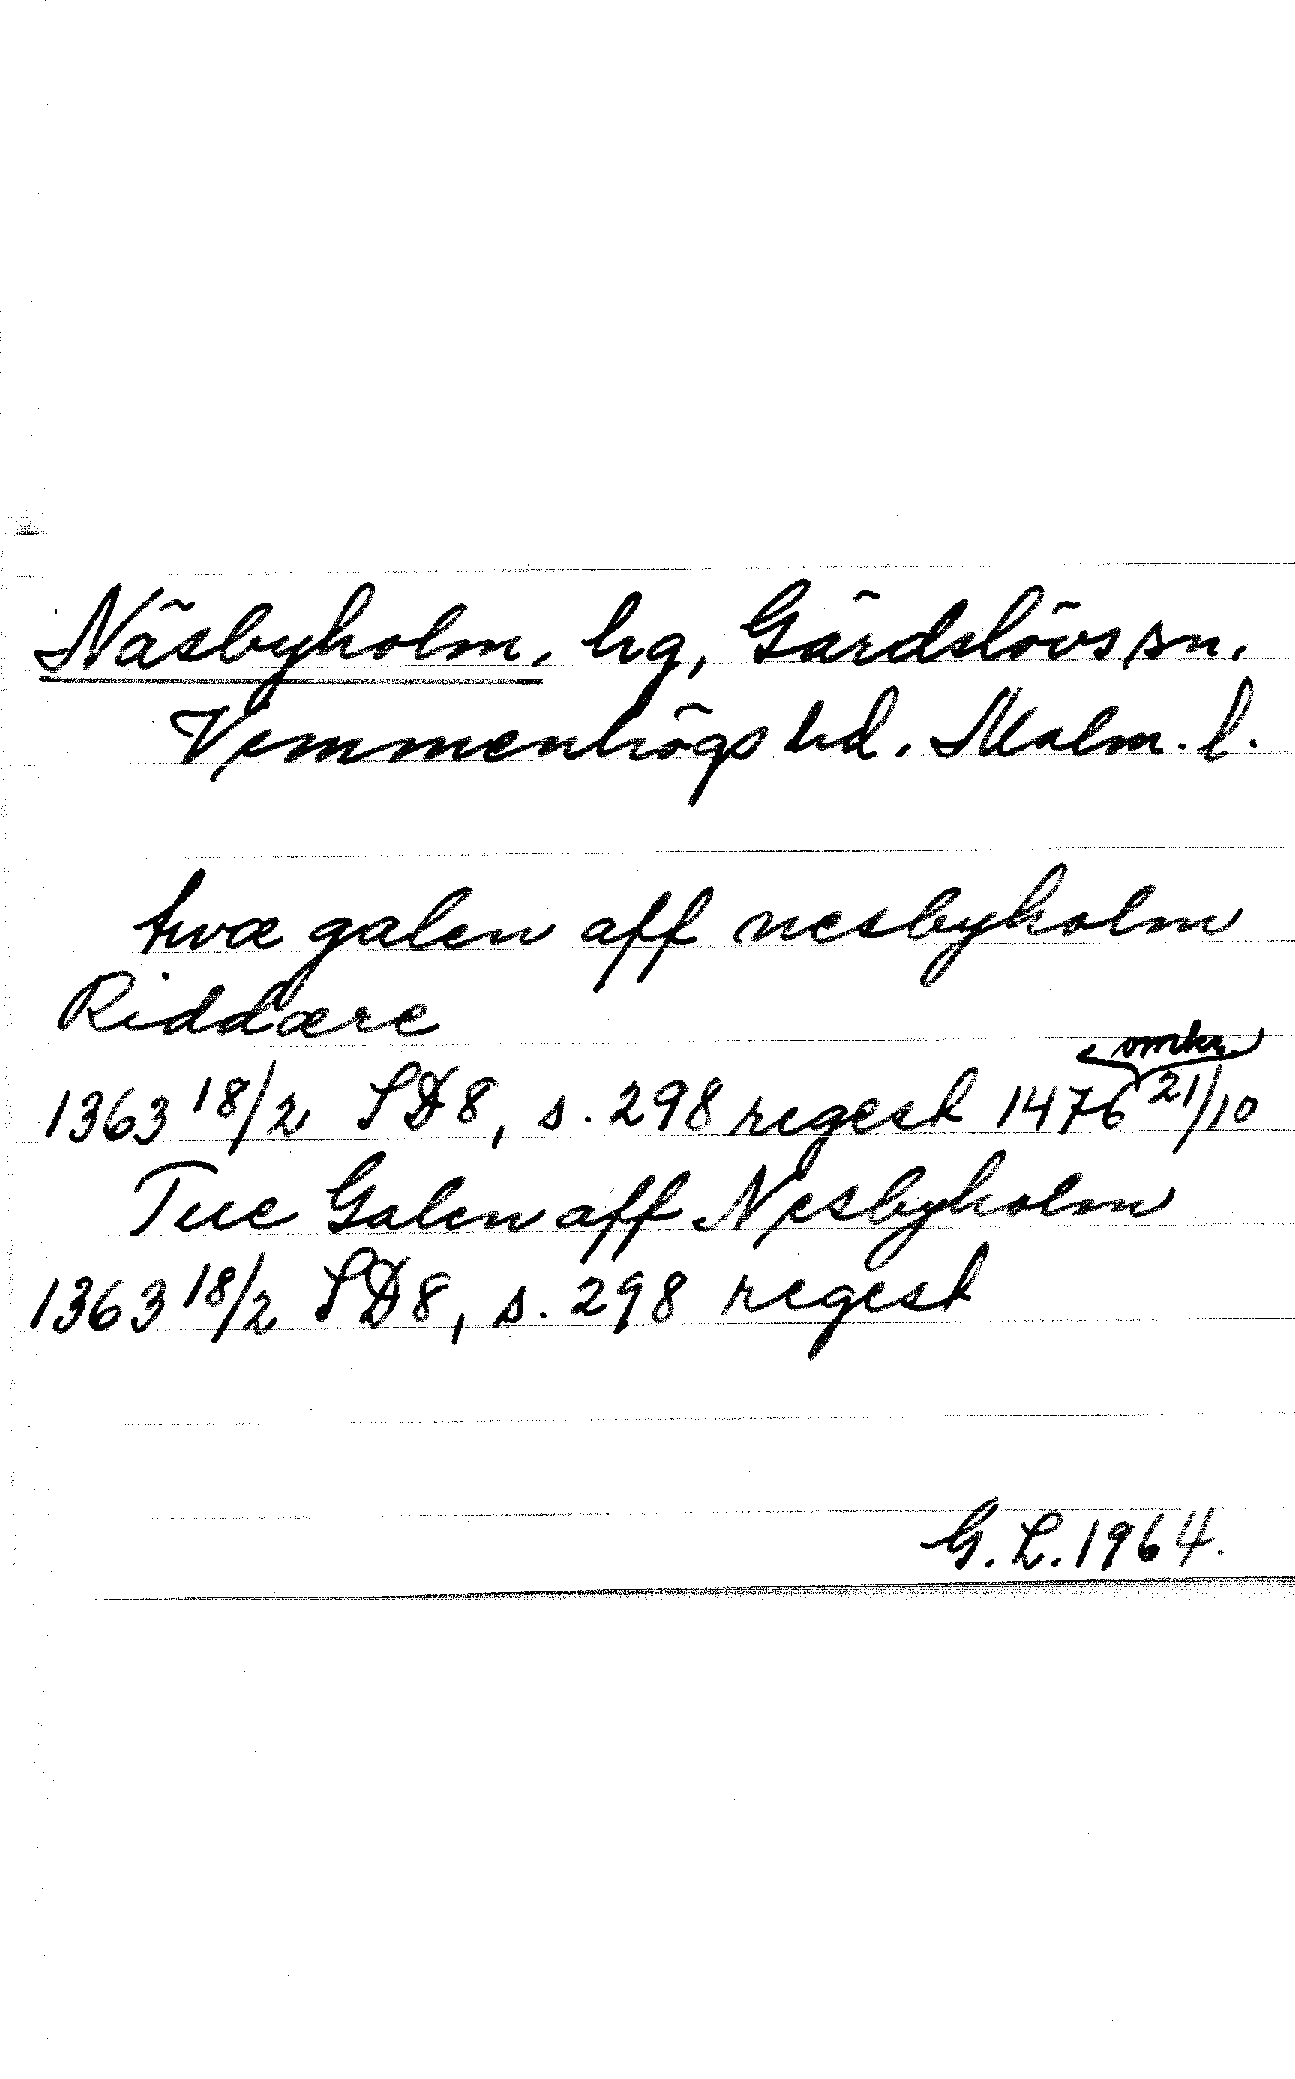 Näsbyholm, hg, Gärdslövs sn.
Vemmenhögs hd. Malm. l.
twæ galen aff nesbyholm
Riddære
omkr
1363 18/2 SD8, s. 298 regest 1476 21/10
Tue Galen aff Nesbyholm
1363 18/2 SD8, s. 298 regest
G. L. 1964.